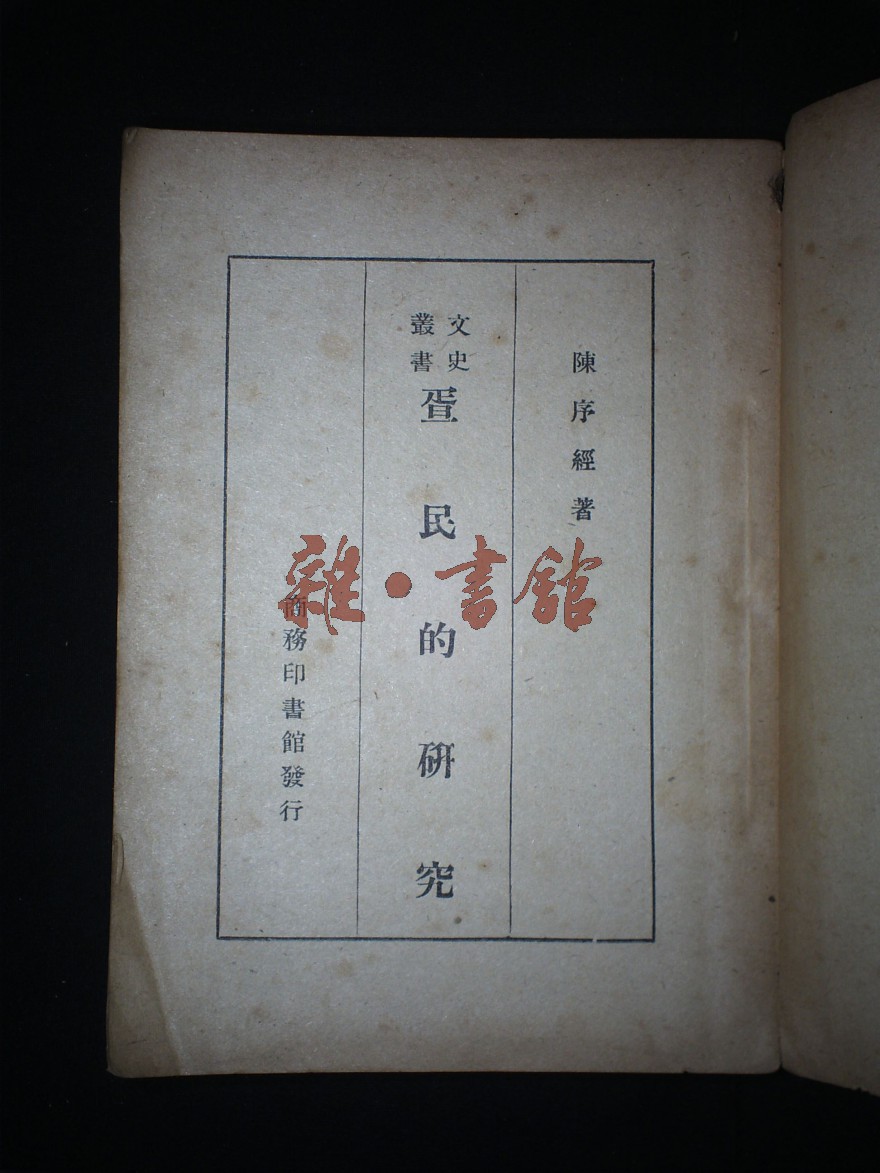 陳序經著
文史
叢書
疍民的研究
商務印書館發行
雜·書館